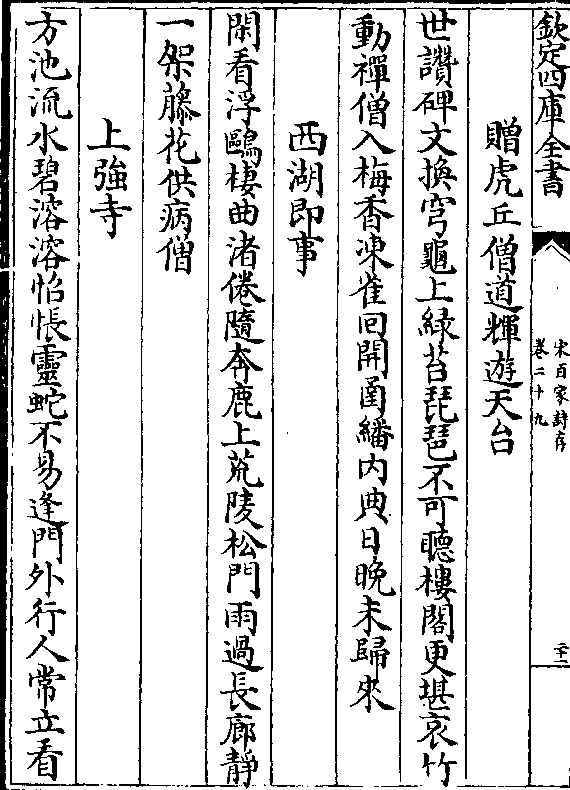 欽定四庫全書
宋百家詩存
卷二十九
二十二
贈虎丘僧道輝遊天台
世讚碑文換穹龜上緑苔琵琶不可聽樓閣更堪哀竹
動禪僧入梅香凍雀回開函繙内典日晚未歸來
西湖即事
閑看浮鷗棲曲渚倦隨奔鹿上荒陵松門雨過長廊靜
一架藤花供病僧
上強寺
方池流水碧溶溶怊悵靈蛇不易逢門外行人常立看